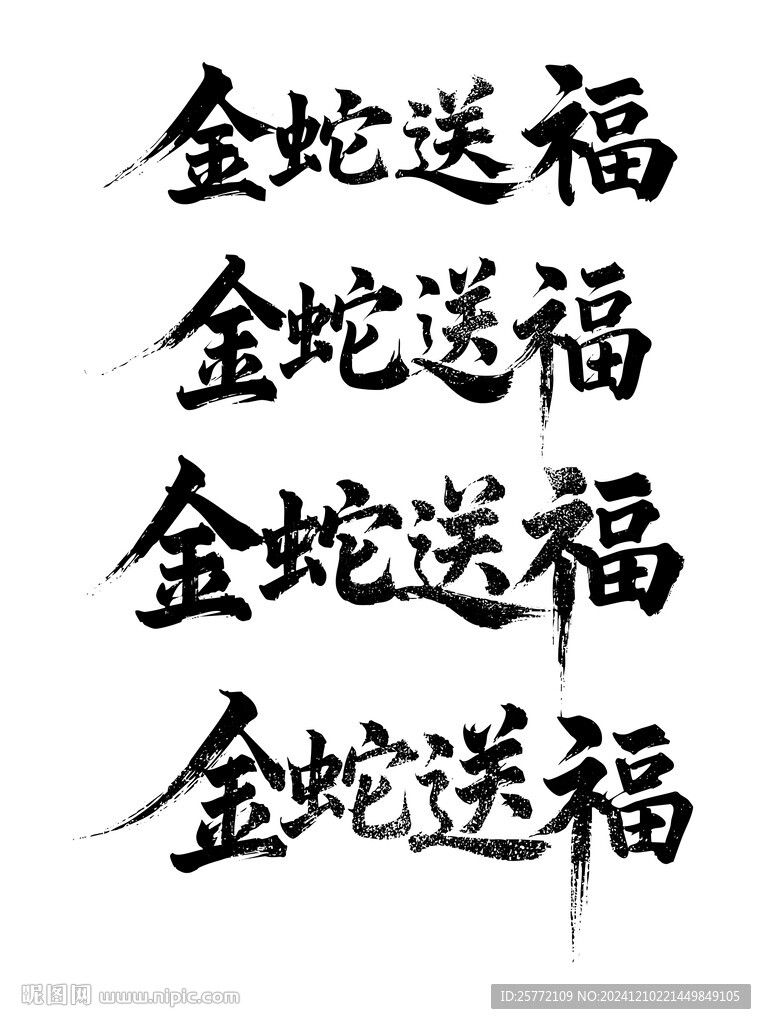 金蛇送福
金蛇送福
金蛇送福
金蛇送福
昵图网 www.nipic.com
ID:25772109 NO:20241210221449849105